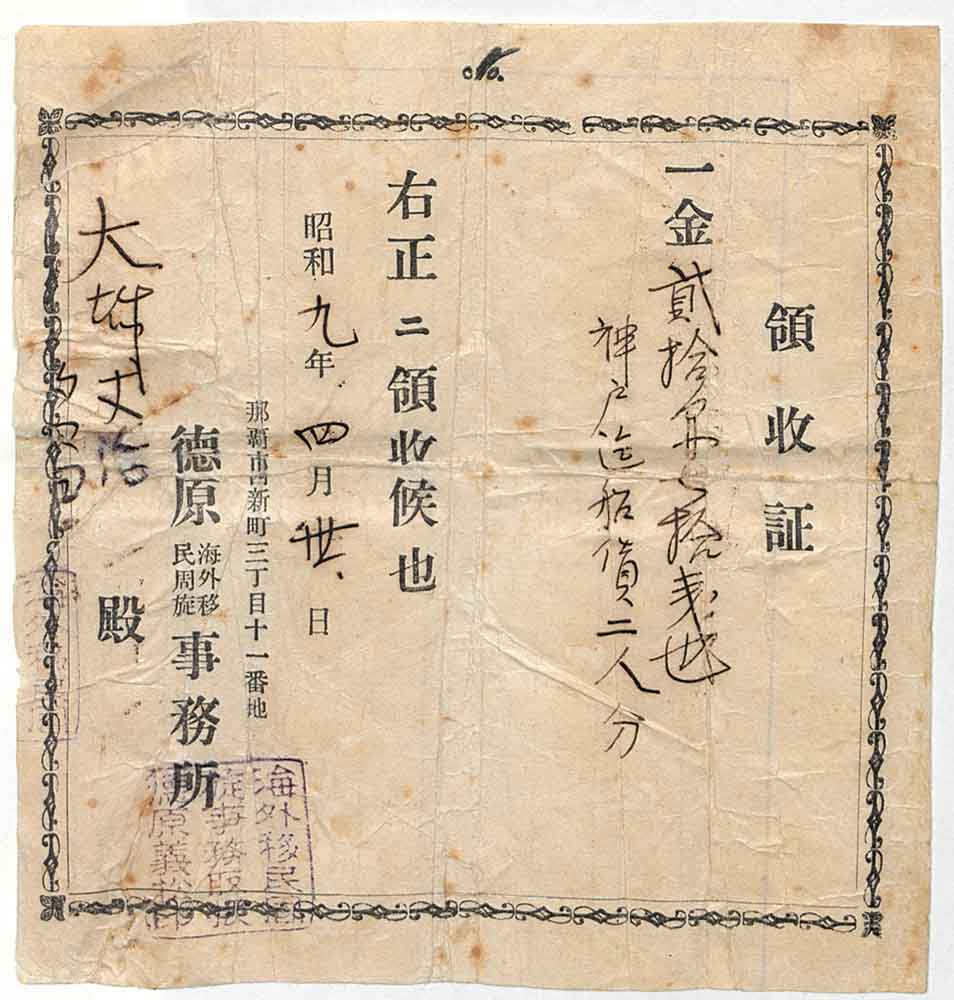 領收証
一金貳拾
神戸迄船賃二人分
右正ニ領收候也
昭和九年四月卅日
那覇市西新町三丁目十一番地
德原海外移民周旋事務所
大城
殿
海外移民周
旋事務取扱
德原義松